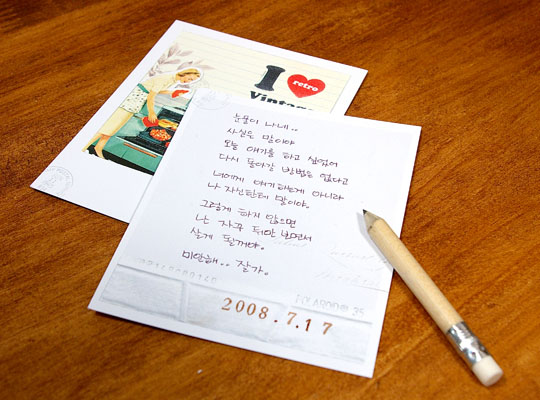 I ♥ retro
Vintage
눈물이 나네..
사실은 말이야
오늘 얘기를 하고 싶었어
다시 돌아갈 방법은 없다고
너에게 얘기하는게 아니라
나 자신한테 말이야.
그렇게 하지 않으면
난 자꾸 뒤만 보면서
살게 될꺼야.
미안해.. 잘가.
2008.7.17